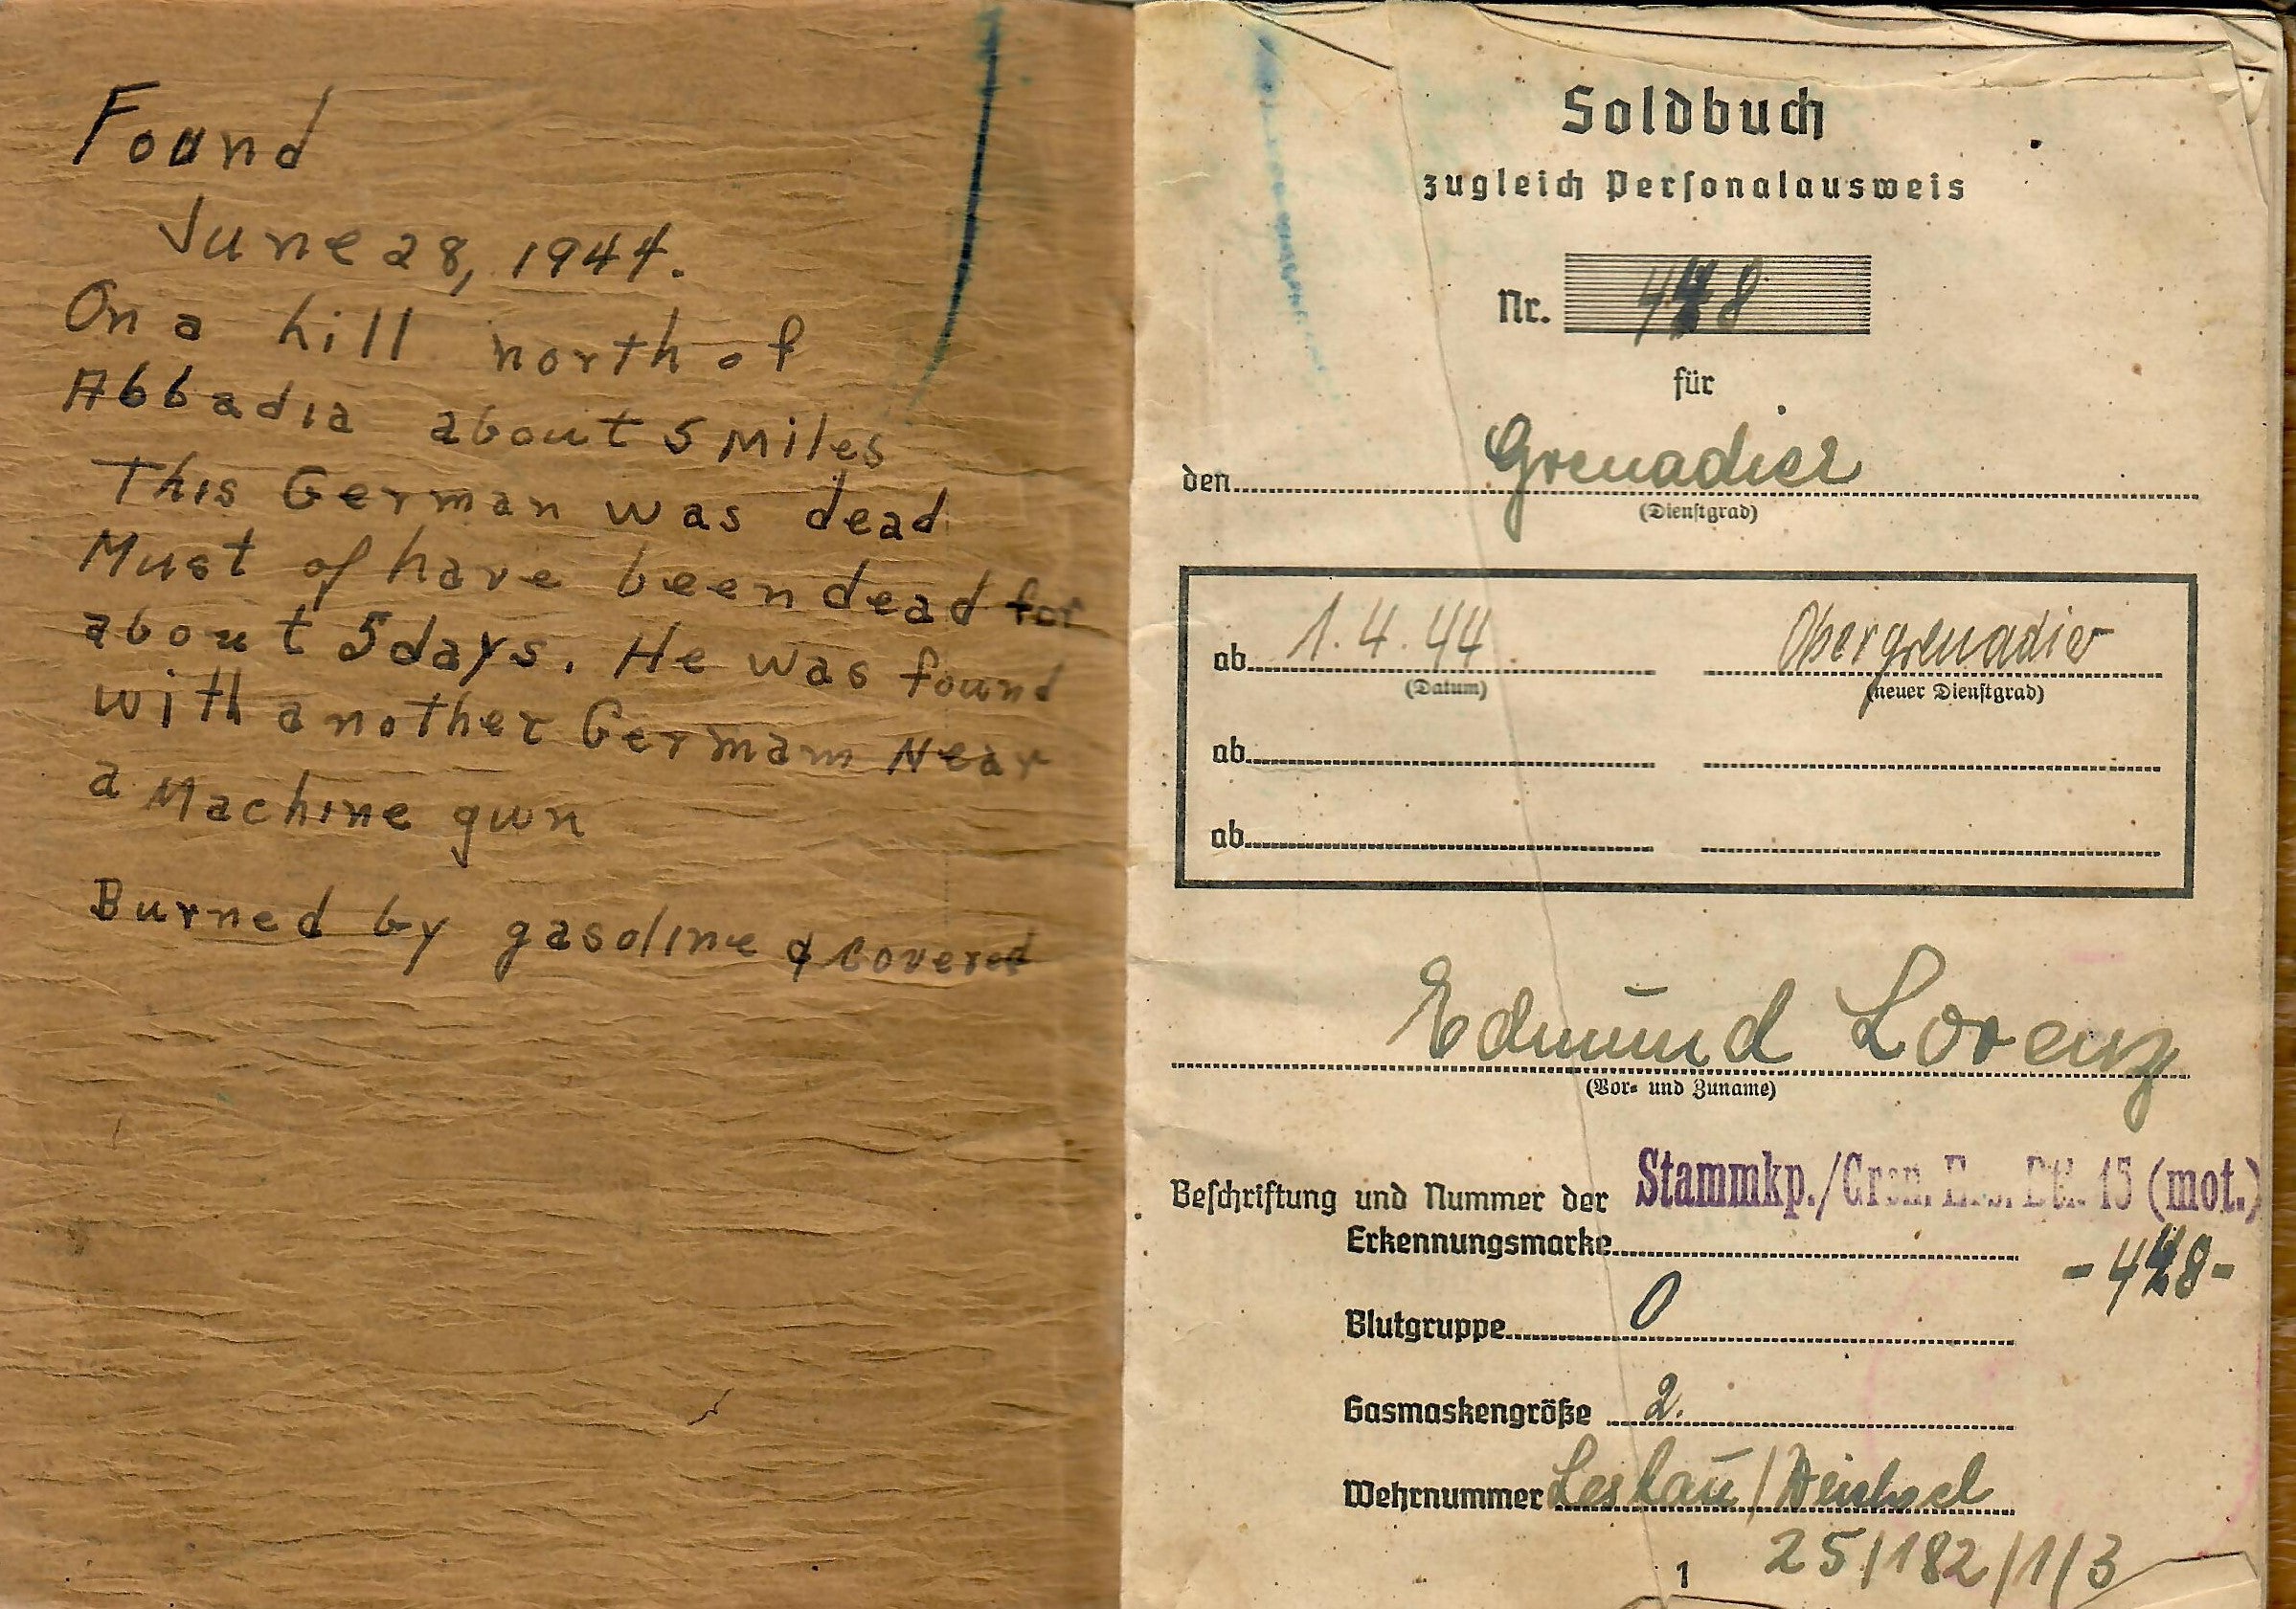 Found
June 28, 1944.
On a hill north of
Abbadia about 5 Miles
This German was dead
Must of have been dead for
about 5 days. He was found
with another German Near
a Machine gun
Burned by gasoline & covered
Soldbuch
zugleich Personalausweis
Nr. 448
für
den Grenadier
(Dienstgrad)
ab 1.4.44 Obergrenadier
(Datum) (neuer Dienstgrad)
ab
ab
Edmund Lorenz
(Vor- und Zuname)
Beschriftung und Nummer der Stammkp./Gren. 15 (mot.)
Erkennungsmarke -448-
Blutgruppe O
Gasmaskengröße 2.
Wehrnummer Leslau/Weichsel
25/182/1/3
1